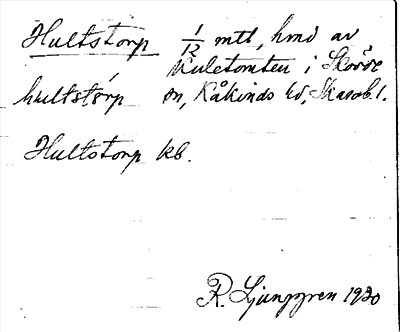 Hultstorp 1/12 mtl, hmd av
Kuletomten i Skövde
hultstórp sn, Kåkinds hd, Skarab. l.
Hultstorp kb.
R. Ljunggren 1930